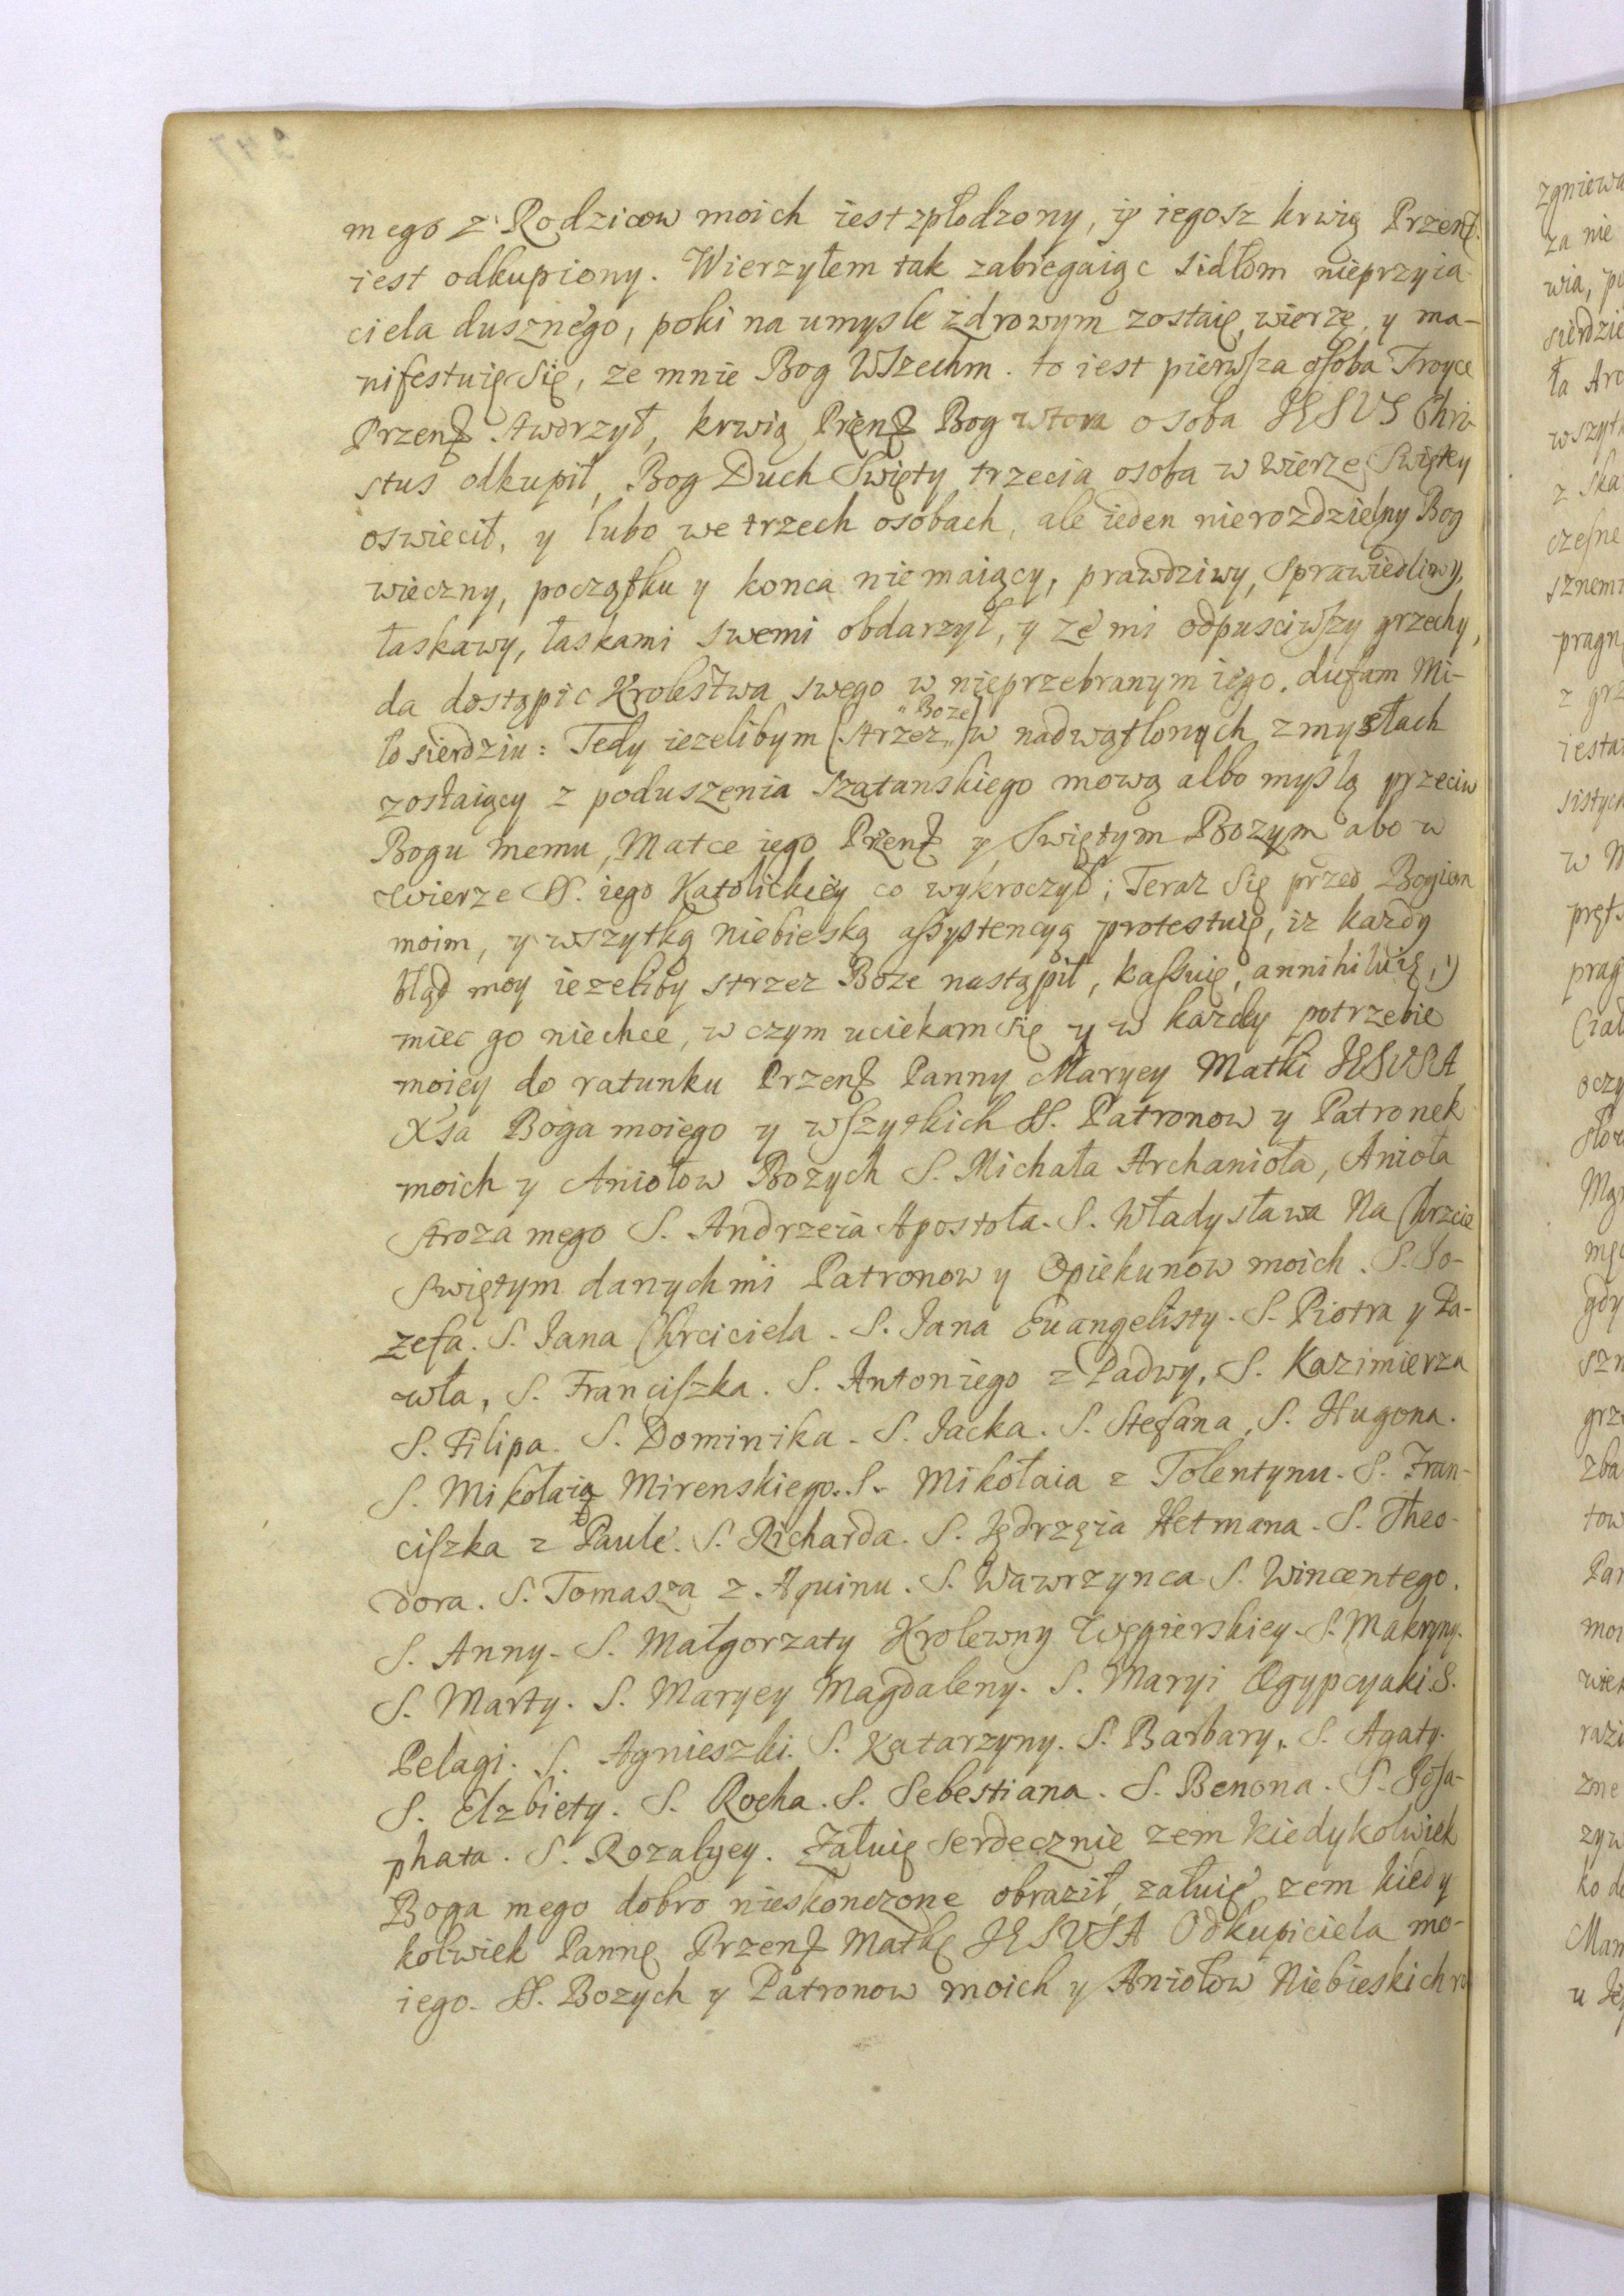 mego z Rodzicow moich iest zpłodzony, iż iegosz krwią Przenę
iest odkupiony. Wierzyłem tak zabiegaiąc sidłom nieprzyia
ciela dusznego, poki na umysle zdrowym zostaię, wierzę, y ma-
nifestuię się, ze mnie Bog Wszechm. to iest pierwsza osoba Troyce
Przenę stworzył, krwią Przenę Bog wtora osoba JESUS Chri-
stus odkupił, Bog Duch Swięty trzecia osoba w wierze Swiętey
oswiecił, y lubo we trzech osobach, ale ieden nierozdzielny Bog
wieczny, początku y konca nie maiący, prawdziwy, Sprawiedliwy,
łaskawy, łaskami swemi obdarzył, y ze mi odpusciwszy grzechy,
da dostąpic Krolestwa swego w nieprzebranym iego, dufam Mi-
losierdziu: Tedy iezelibym (strzez Boze) w nadwątlonych zmysłach
zostaiący z poduszenia szatanskiego mową albo myslą przeciw
Bogu memu, Matce iego Przenę y Swiętym Bozym abo w
wierze SS. iego Katolickiey co wykroczył; Teraz się przed Bogiem
moim, y wszytką niebieską assystencyą protestuię, iz kazdy
błąd moy iezeliby strzez Boze nastąpił, kassuię, annihiluię, y
miec go niechce, w czym uciekam się y w kazdey potrzebie
moiey do ratunku Przenę Panny Maryey Matki JESUSA
Xsa Boga moiego y wszytkich SS. Patronow y Patronek
moich y Aniołow Bozych S. Michała Archanioła, Anioła
stroza mego S. Andrzeia Apostoła. S. Władysława Na Chrzcie
Swiętym danych mi Patronow y Opiekunow moich. S. Jo-
zefa. S. Jana Chrciciela. S. Jana Euangelisty. S. Piotra y Pa-
wła, S. Franciszka. S. Antoniego z Padwy, S. Kazimierza
S. Filipa. S. Dominika. S. Jacka. S. Stefana, S. Hugona.
S. Mikołaia Mirenskiego. S. Mikołaia z Tolentynu. S. Fran-
ciszka z Paule. S. Richarda. S. Jędrzeia Hetmana. S. Theo-
dora. S. Tomasza z Aquinu. S. Wawrzynca S. Wincentego.
S. Anny. S. Małgorzaty Krolewny Węgierskiey. S. Makryny.
S. Marty. S. Maryey Magdaleny. S. Maryi Ægypcyaki. S.
Pelagi. S. Agnieszki. S. Katarzyny. S. Barbary, S. Agaty.
S. Elzbiety. S. Rocha. S. Sebestiana. S. Benona. S. Josa-
phata. S. Rozalyey. Załuię serdecznie zem kiedykolwiek
Boga mego dobro nieskonczone obraził, załuię, zem kiedy
kolwiek Pannę Przenę Matkę JESUSA Odkupiciela mo-
iego. SS. Bozych y Patronow moich y Aniołow Niebieskich